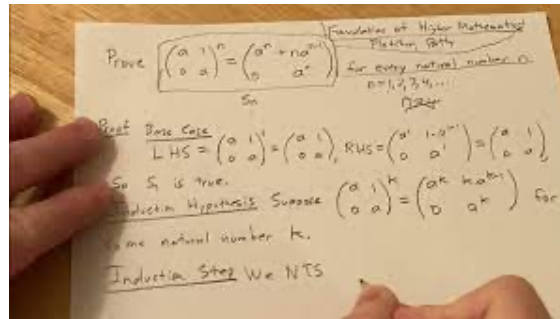 Foundations of Higher Mathematics
Fletcher, Patty
Prove (a 1; 0 a)^n = (a^n na^{n-1}; 0 a^n) for every natural number n.
n=1,2,3,4,...
Sn
Proof Base Case
LHS = (a 1; 0 a)^1 = (a 1; 0 a), RHS = (a^1 1·a^{1-1}; 0 a^1) = (a 1; 0 a),
So S1 is true.
Induction Hypothesis Suppose (a 1; 0 a)^k = (a^k ka^{k-1}; 0 a^k) for
some natural number k.
Induction Step We NTS